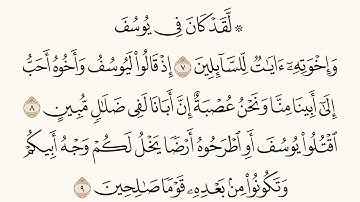 ۞ لَّقَدْ كَانَ فِى يُوسُفَ
وَإِخْوَتِهِۦٓ ءَايَٰتٌ لِّلسَّآئِلِينَ ٧ إِذْ قَالُوا۟ لَيُوسُفُ وَأَخُوهُ أَحَبُّ
إِلَىٰٓ أَبِينَا مِنَّا وَنَحْنُ عُصْبَةٌ إِنَّ أَبَانَا لَفِى ضَلَٰلٍ مُّبِينٍ ٨
ٱقْتُلُوا۟ يُوسُفَ أَوِ ٱطْرَحُوهُ أَرْضًا يَخْلُ لَكُمْ وَجْهُ أَبِيكُمْ
وَتَكُونُوا۟ مِنۢ بَعْدِهِۦ قَوْمًا صَٰلِحِينَ ٩